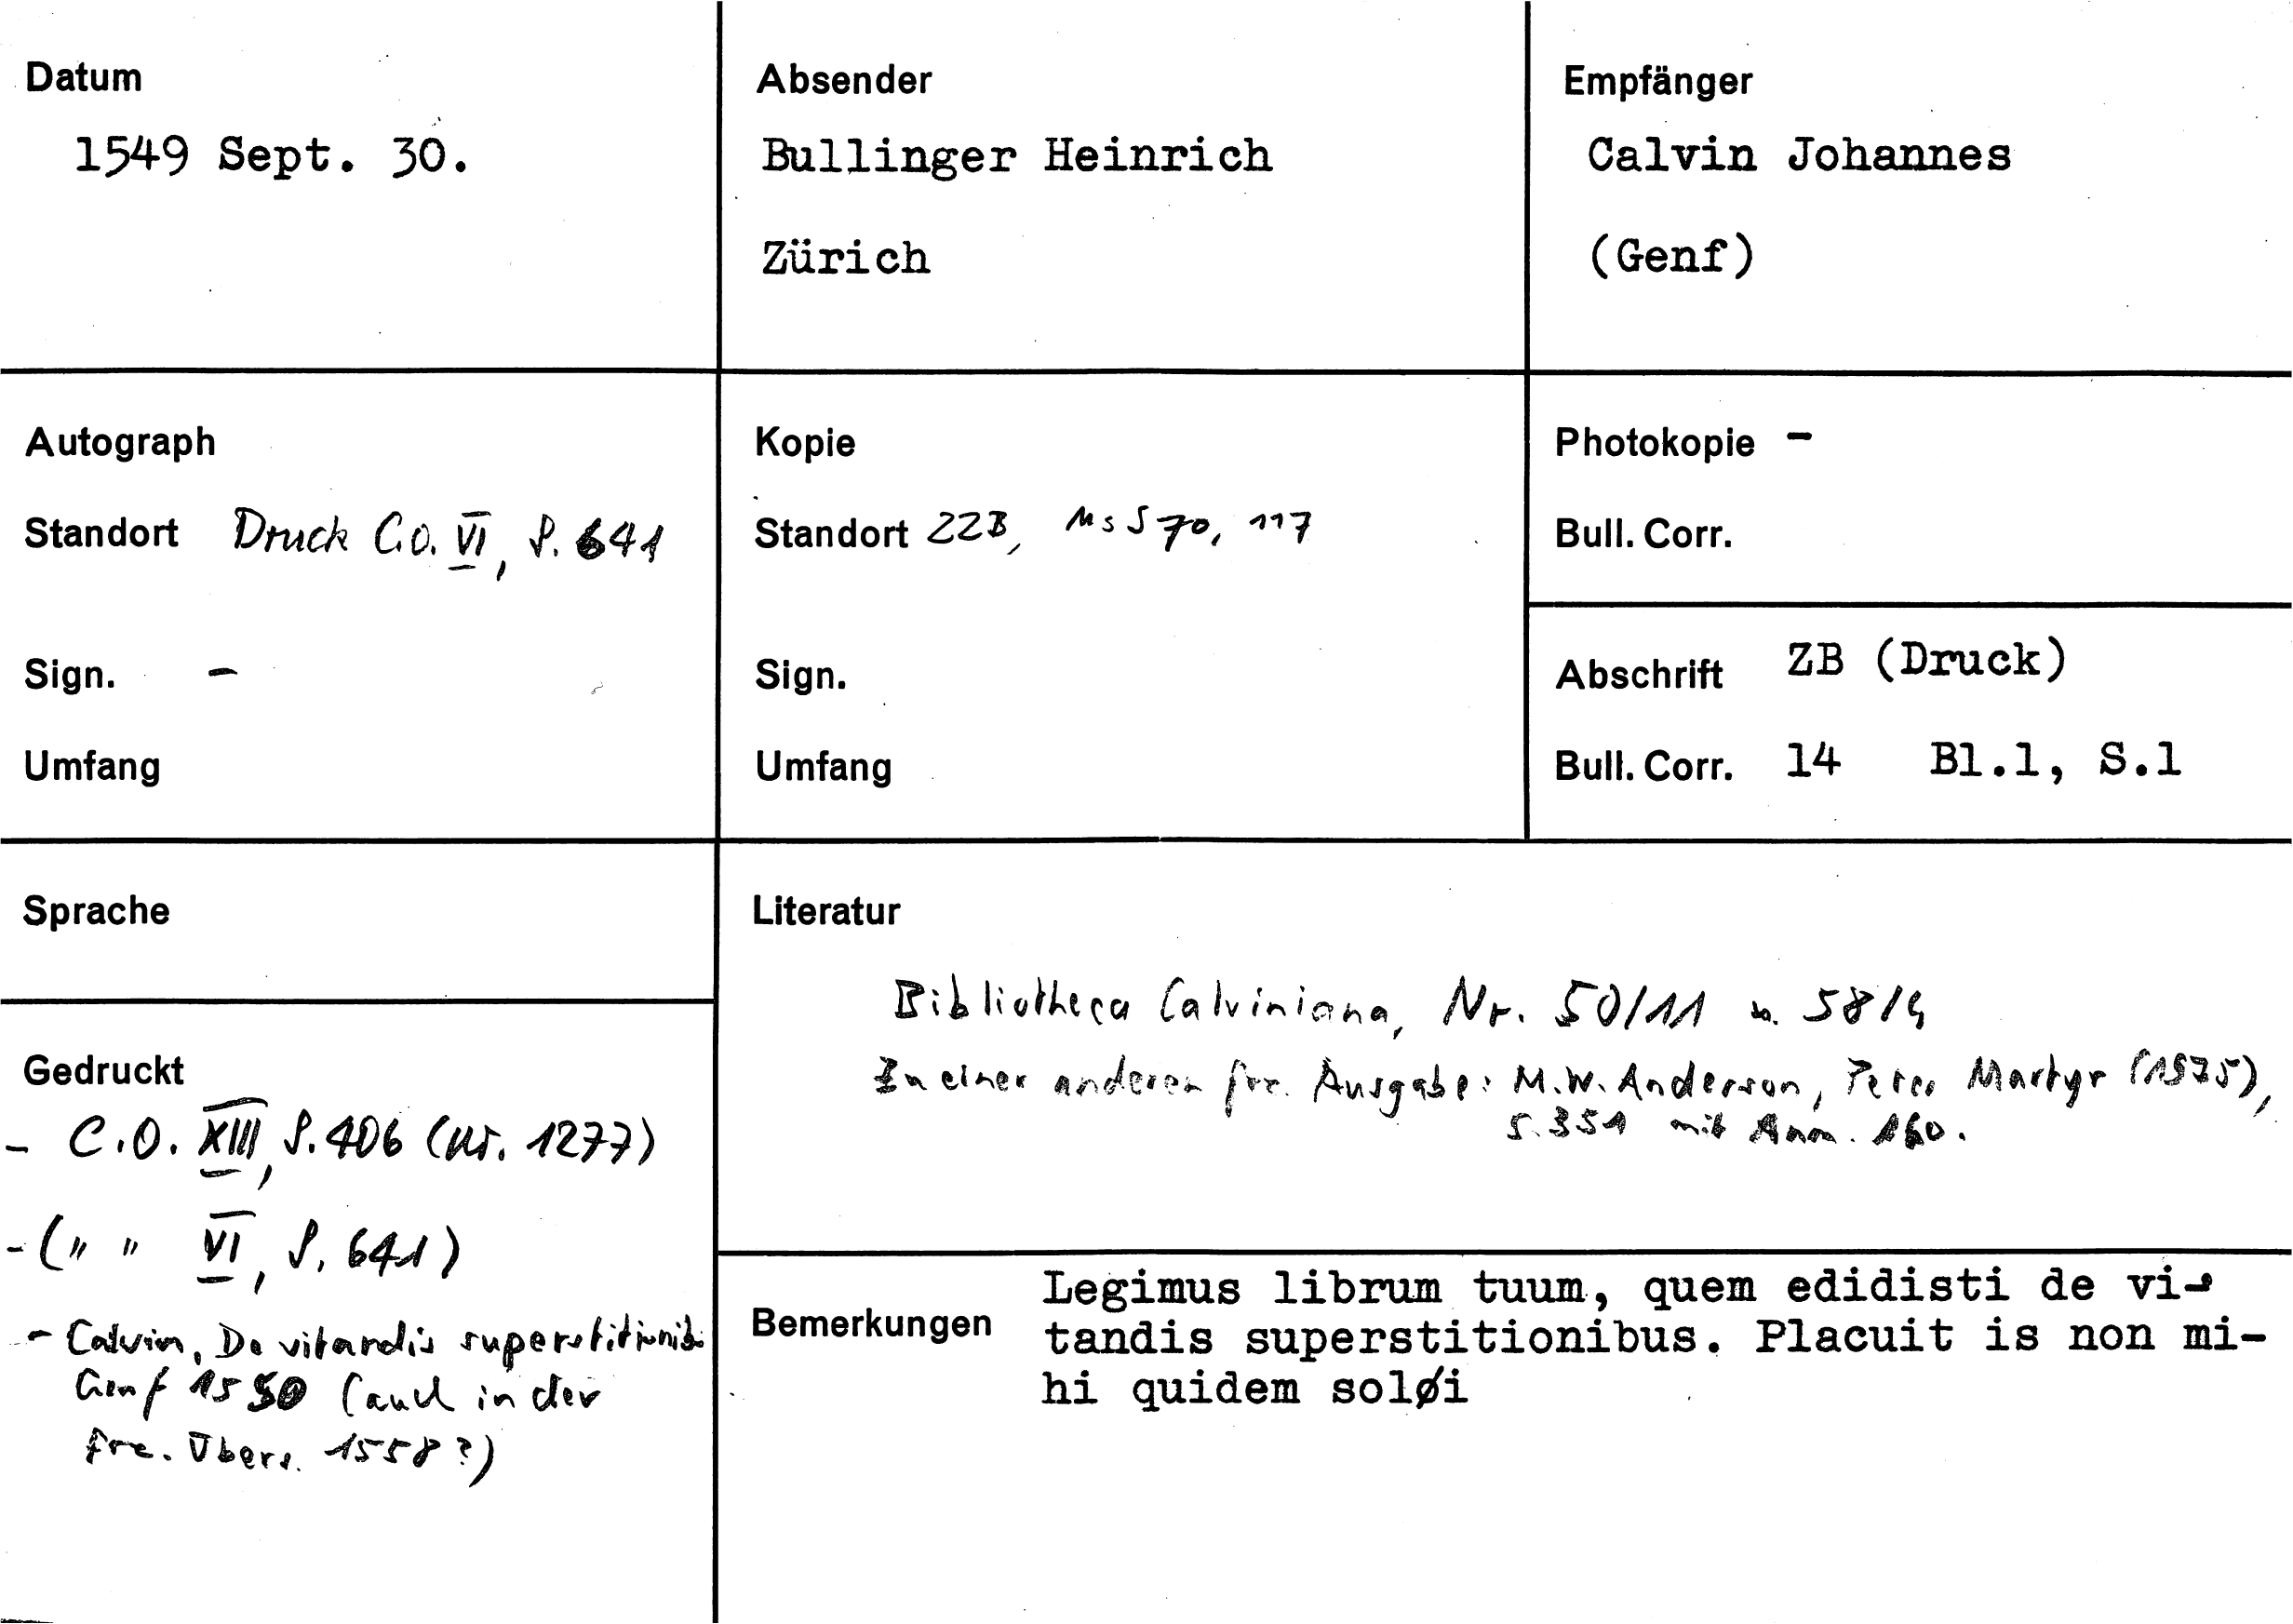 Datum
1549 Sept. 30.
Absender
Bullinger Heinrich
Zürich
Empfänger
Calvin Johannes
(Genf)
Autograph
Standort Druck C.O. VI, S. 641
Sign. -
Umfang
Kopie
Standort ZZB, Ms S 70, 117
Sign.
Umfang
Photokopie -
Bull. Corr.
Abschrift ZB (Druck)
Bull. Corr. 14 Bl.1, S.1
Sprache
Gedruckt
- C.O. XIII, S. 406 (Nr. 1277)
- (" " VI, S. 641)
- Calvin, De vitandis superstitionib.
Genf 1550 (auch in der
frz. Übers. 1558?)
Literatur
Bibliotheca Calviniana, Nr. 50/11 u. 58/4
Zu einer anderen frz. Ausgabe: M.W. Anderson, Peter Martyr (1975),
S. 351 mit Anm. 160.
Bemerkungen
Legimus librum tuum, quem edidisti de vi-
tandis superstitionibus. Placuit is non mi-
hi quidem soløi